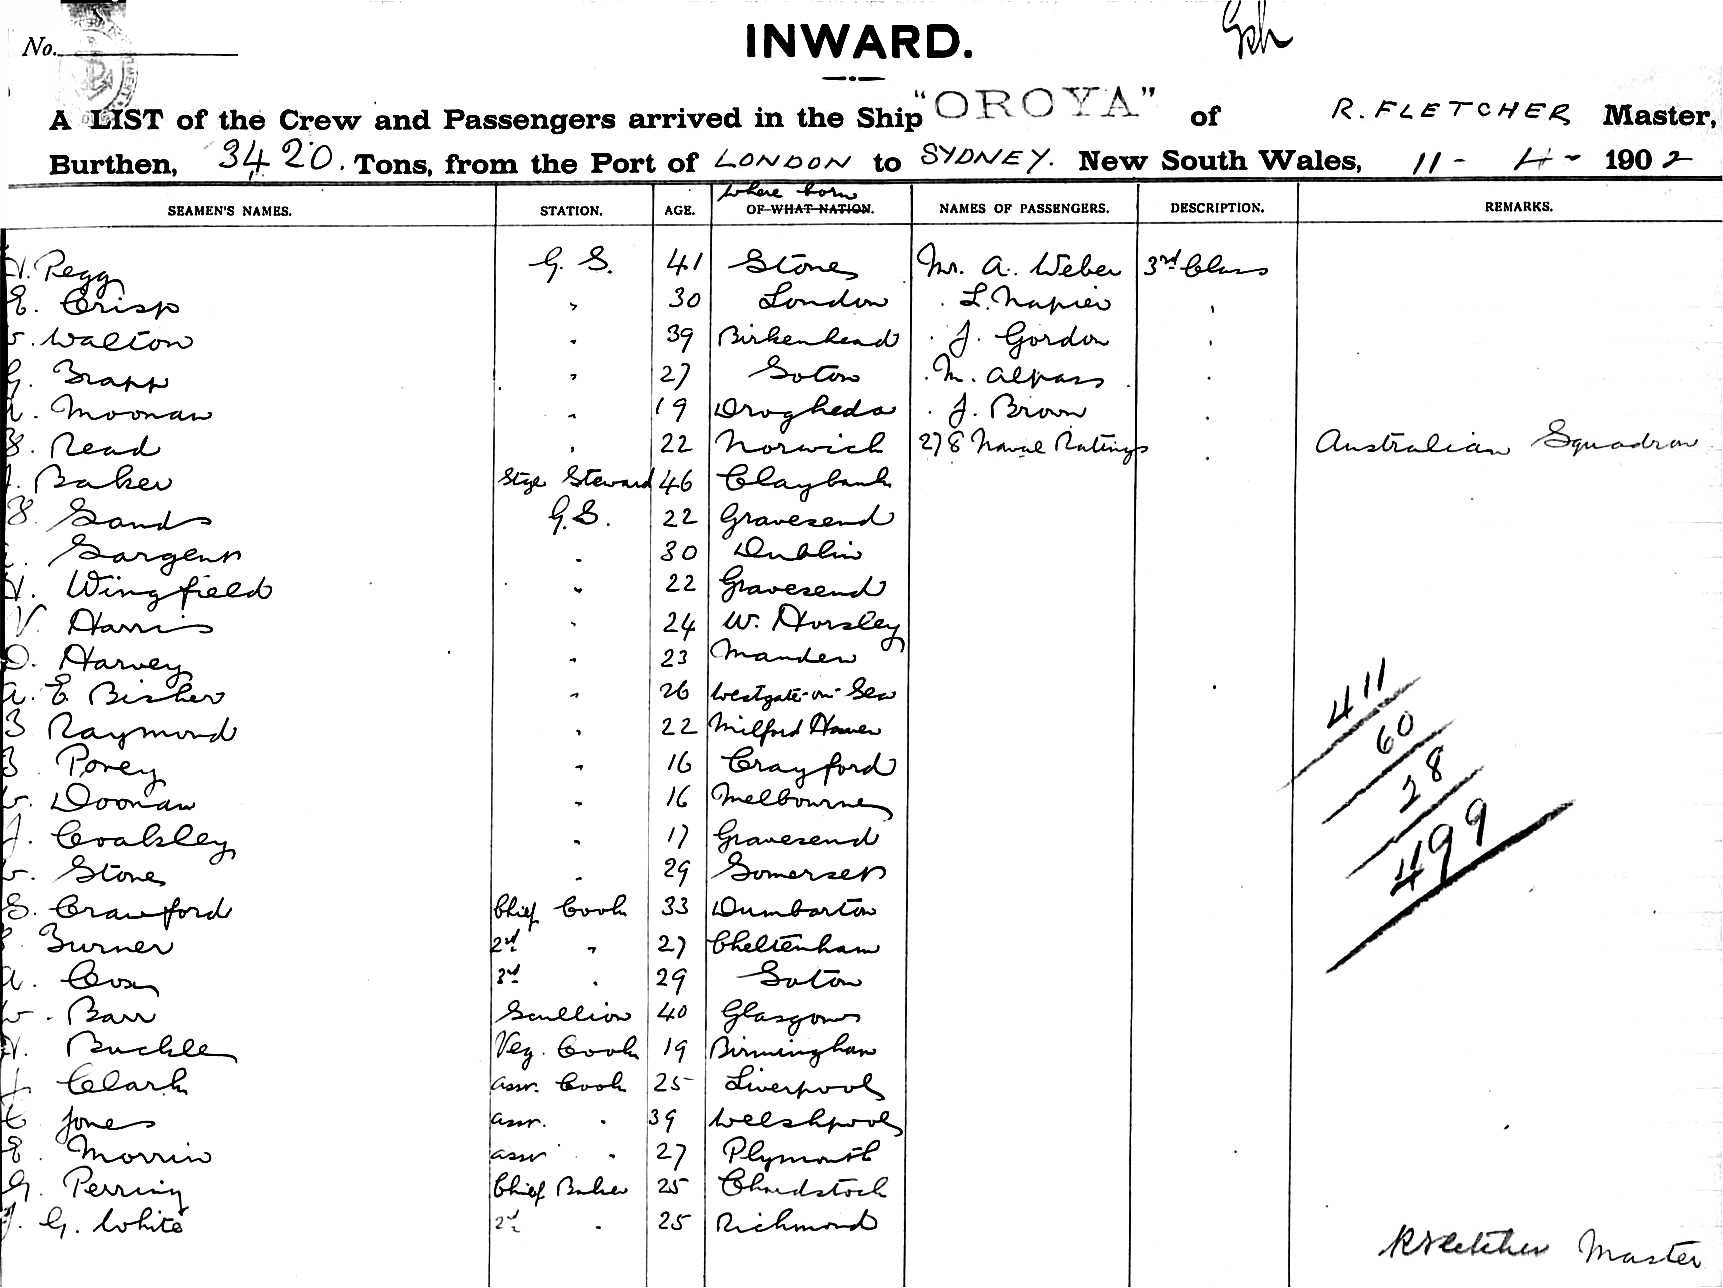 No.
INWARD.
A LIST of the Crew and Passengers arrived in the Ship "OROYA" of R. FLETCHER Master,
Burthen, 3420. Tons, from the Port of LONDON to SYDNEY. New South Wales, 11 - 4 - 1902
where born
SEAMEN'S NAMES. STATION. AGE. OF WHAT NATION. NAMES OF PASSENGERS. DESCRIPTION. REMARKS.
H. Pegg G. S. 41 Stone Mr. A. Weber 3rd Class
E. Crisp " 30 London " L. Napier "
Walton " 39 Birkenhead " J. Gordon "
G. Brapp " 27 Soton " M. Alpass "
Moonan " 19 Drogheda " J. Brown "
Read " 22 Norwich 278 Naval Ratings " Australian Squadron
Baker Stge Steward 46 Claybank
Sands G.S. 22 Gravesend
Sargent " 30 Dublin
Wingfield " 22 Gravesend
V. Harris " 24 W. Horsley
D. Harvey " 23 Manden
A. E. Bisher " 26 Westgate-on-Sea
Raymond " 22 Milford Haven
Povey " 16 Crayford
Doonan " 16 Melbourne
J. Coaksley " 17 Gravesend
Stone " 29 Somerset
S. Crawford Chief Cook 33 Dumbarton
Burner 2nd " 27 Cheltenham
A. Cox 3rd " 29 Soton
Barr Scullion 40 Glasgow
H. Buckle Veg. Cook 19 Birmingham
Clark Asst. Cook 25 Liverpool
Jones Asst. " 39 Welshpool
E. Morrin Asst " 27 Plymouth
G. Perring Chief Baker 25 Chardstock
J. G. White 2nd " 25 Richmond
411
60
28
499
R Fletcher Master